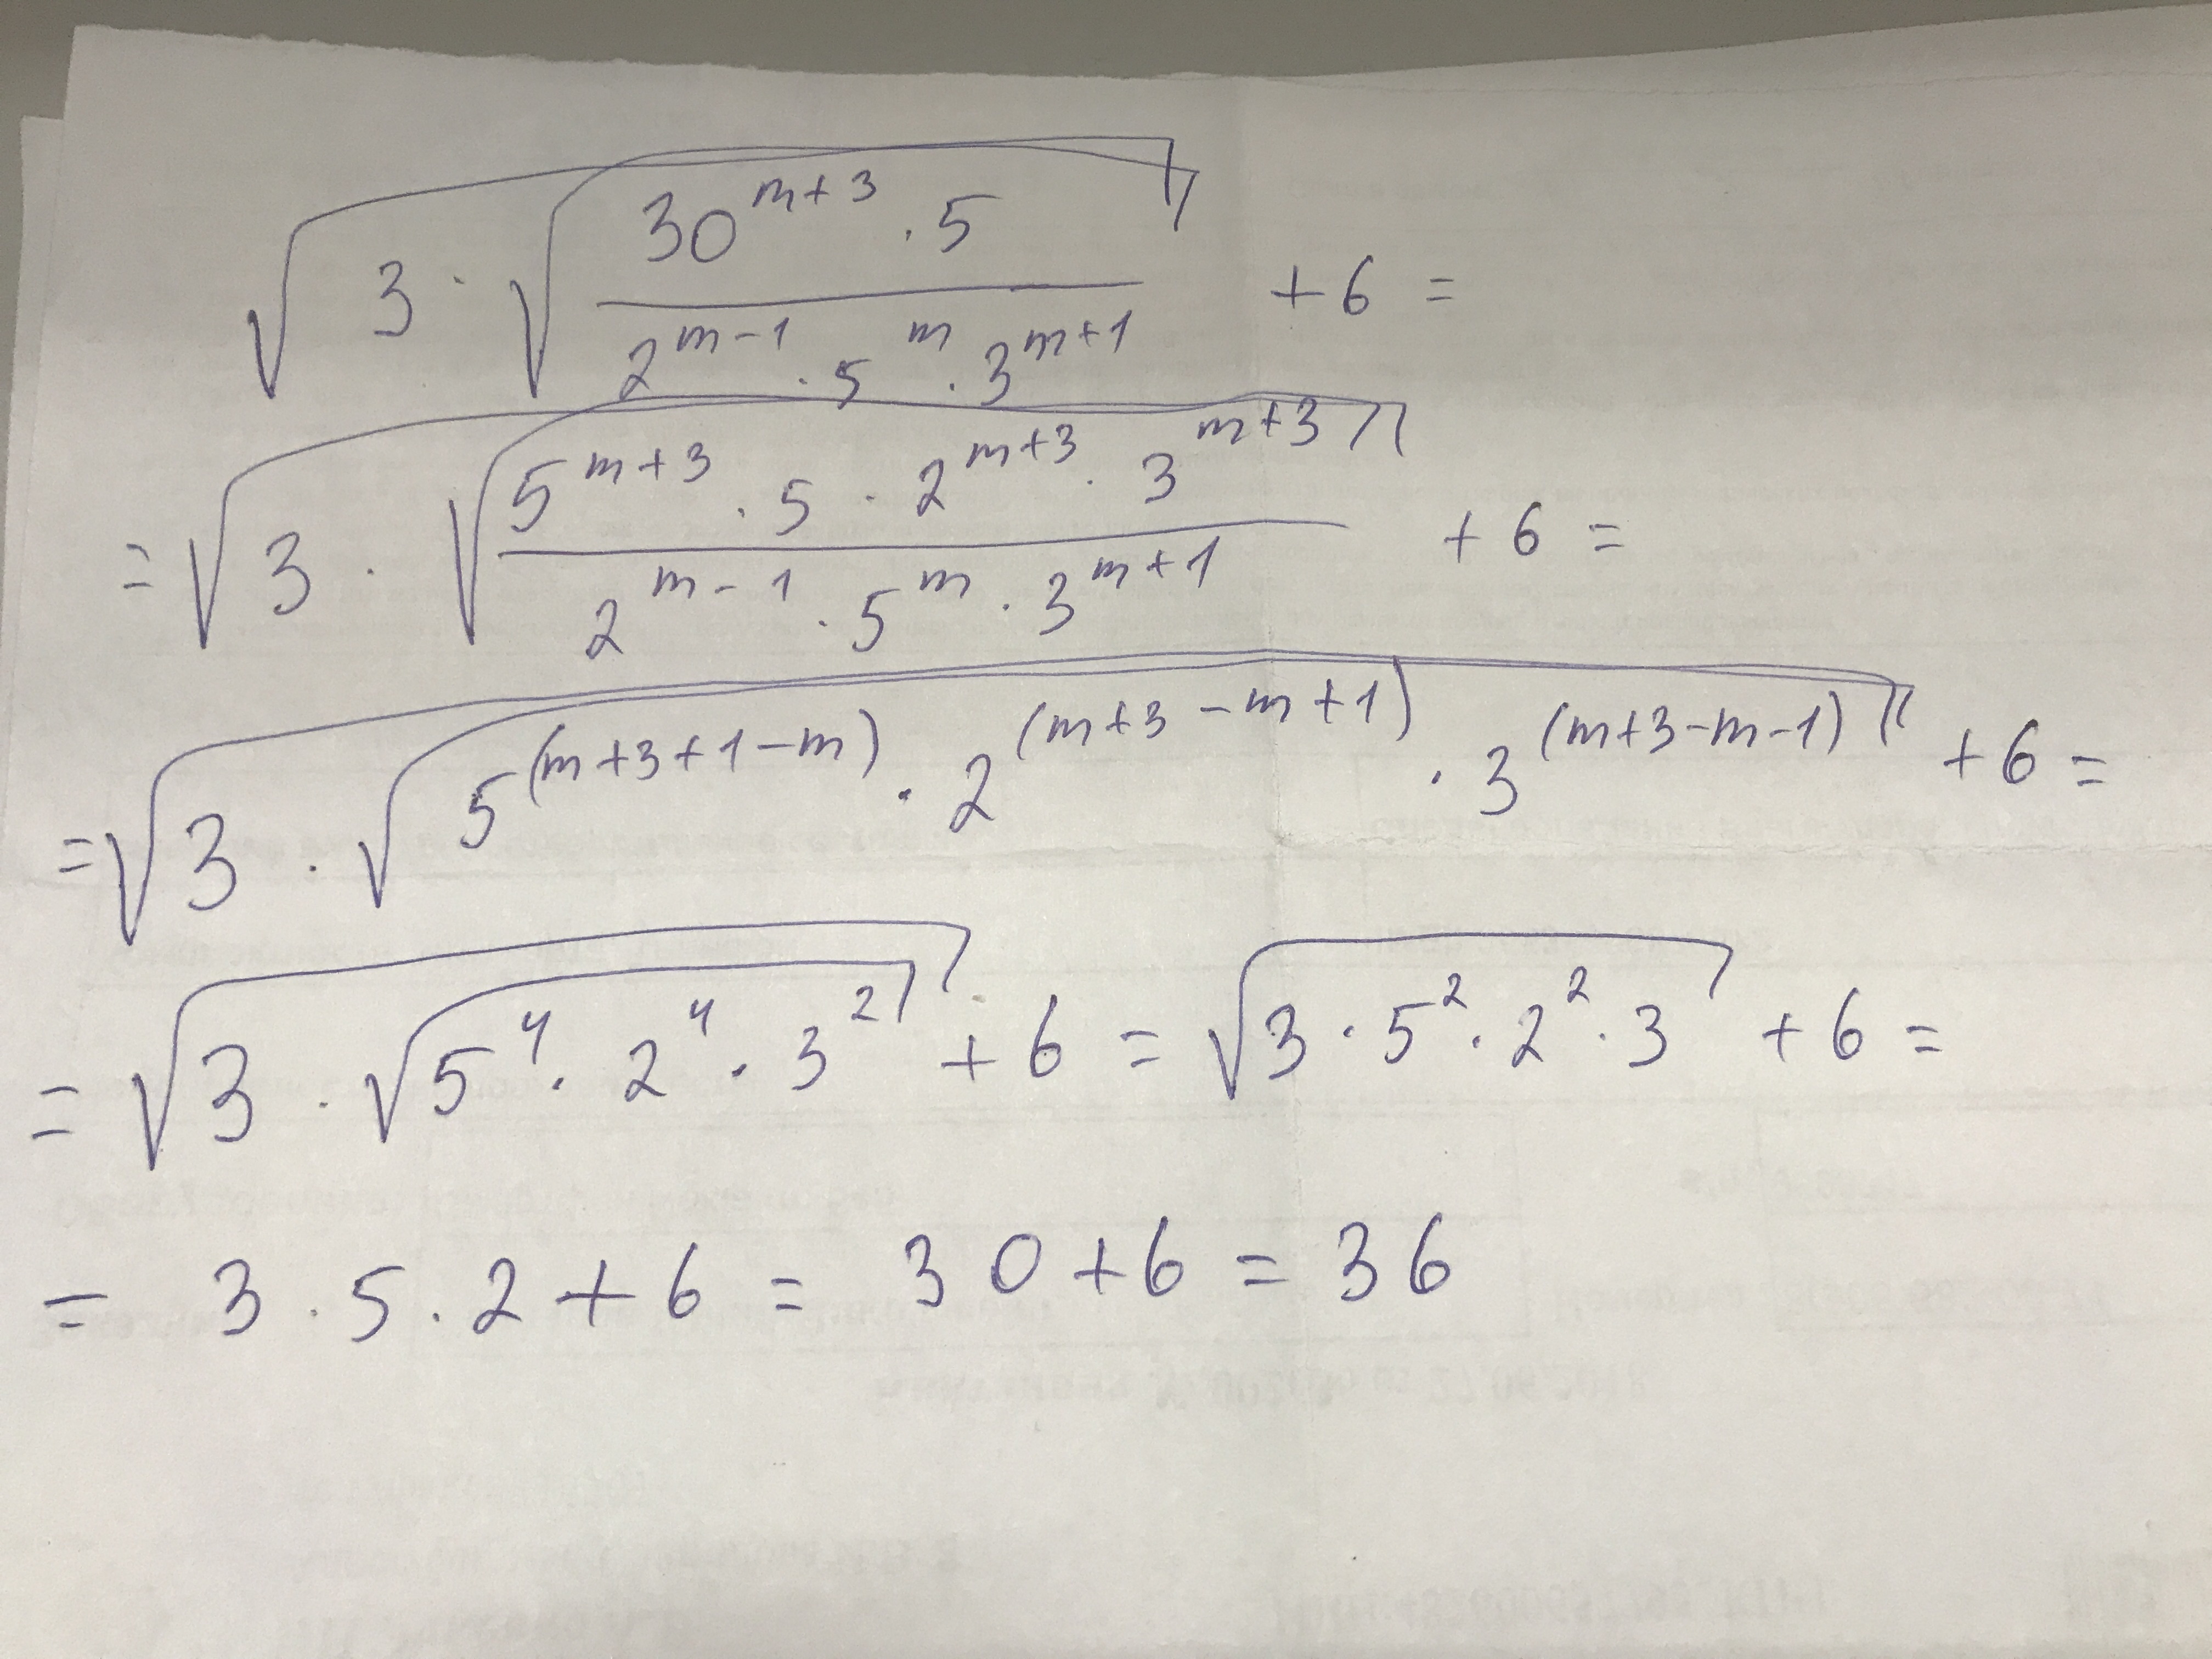 √(3 · √((30^(m+3) · 5)/(2^(m-1) · 5^m · 3^(m+1)))) + 6 =
= √(3 · √((5^(m+3) · 5 · 2^(m+3) · 3^(m+3))/(2^(m-1) · 5^m · 3^(m+1)))) + 6 =
= √(3 · √(5^(m+3+1-m) · 2^(m+3-m+1) · 3^(m+3-m-1))) + 6 =
= √(3 · √(5^4 · 2^4 · 3^2)) + 6 = √(3 · 5^2 · 2^2 · 3) + 6 =
= 3 · 5 · 2 + 6 = 30 + 6 = 36